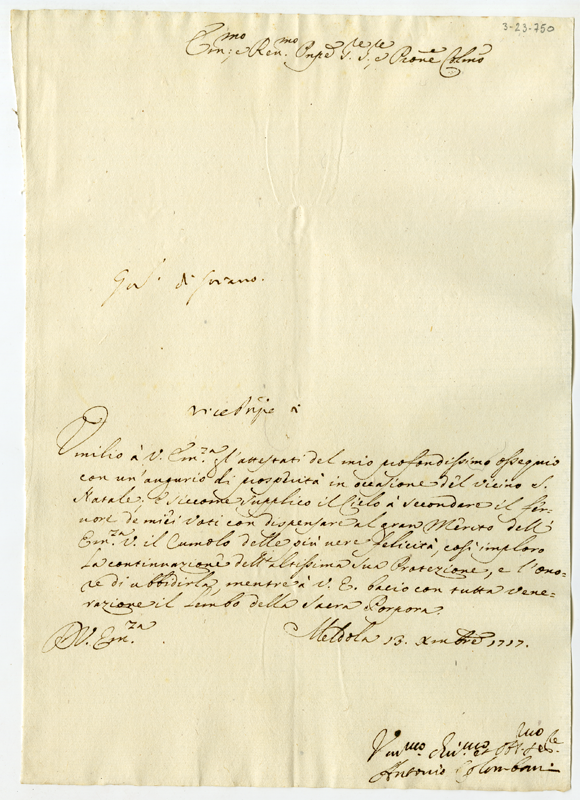 3-23-750
Em:mo e Ren:mo Pnpē S. S.re, e Pnōe Colmo
di
Umilio à V. Em.za gl'attestati del mio profondissimo ossequio
con un'augurio di prosperità in occasione del vicino S.
Natale. E siccome supplico il Cielo à secondare il fer-
uore de miei voti con dispensare al gran Merito dell'
Em.za V. il Cumolo delle più vere felicità, così imploro
la continuazione dell'altissima sua Protezione, e l'ono-
re di ubbidirla, mentre à V. E. bacio con tutta vene-
razione il Lembo della Sacra Porpora.
D V. Em.za Meldola 13. Xmbre 1717.
Um.mo Diu.mo et Obl.mo
Antonio Colombani